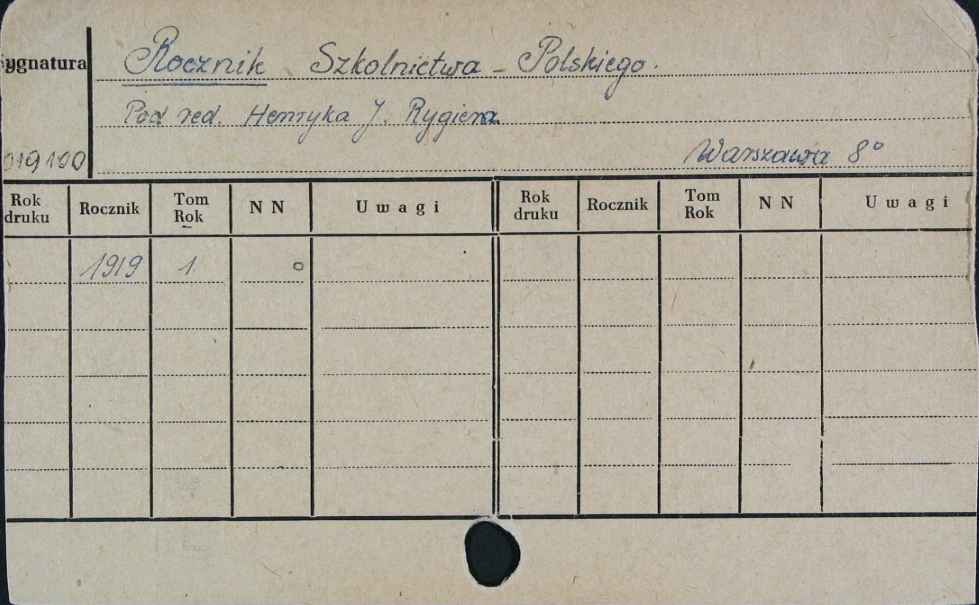 Sygnatura
Rocznik Szkolnictwa - Polskiego.
Pod red. Henryka J. Rygiera
019100
Warszawa 8°
Rok druku Rocznik Tom Rok N N Uwagi Rok druku Rocznik Tom Rok N N Uwagi
1919 1